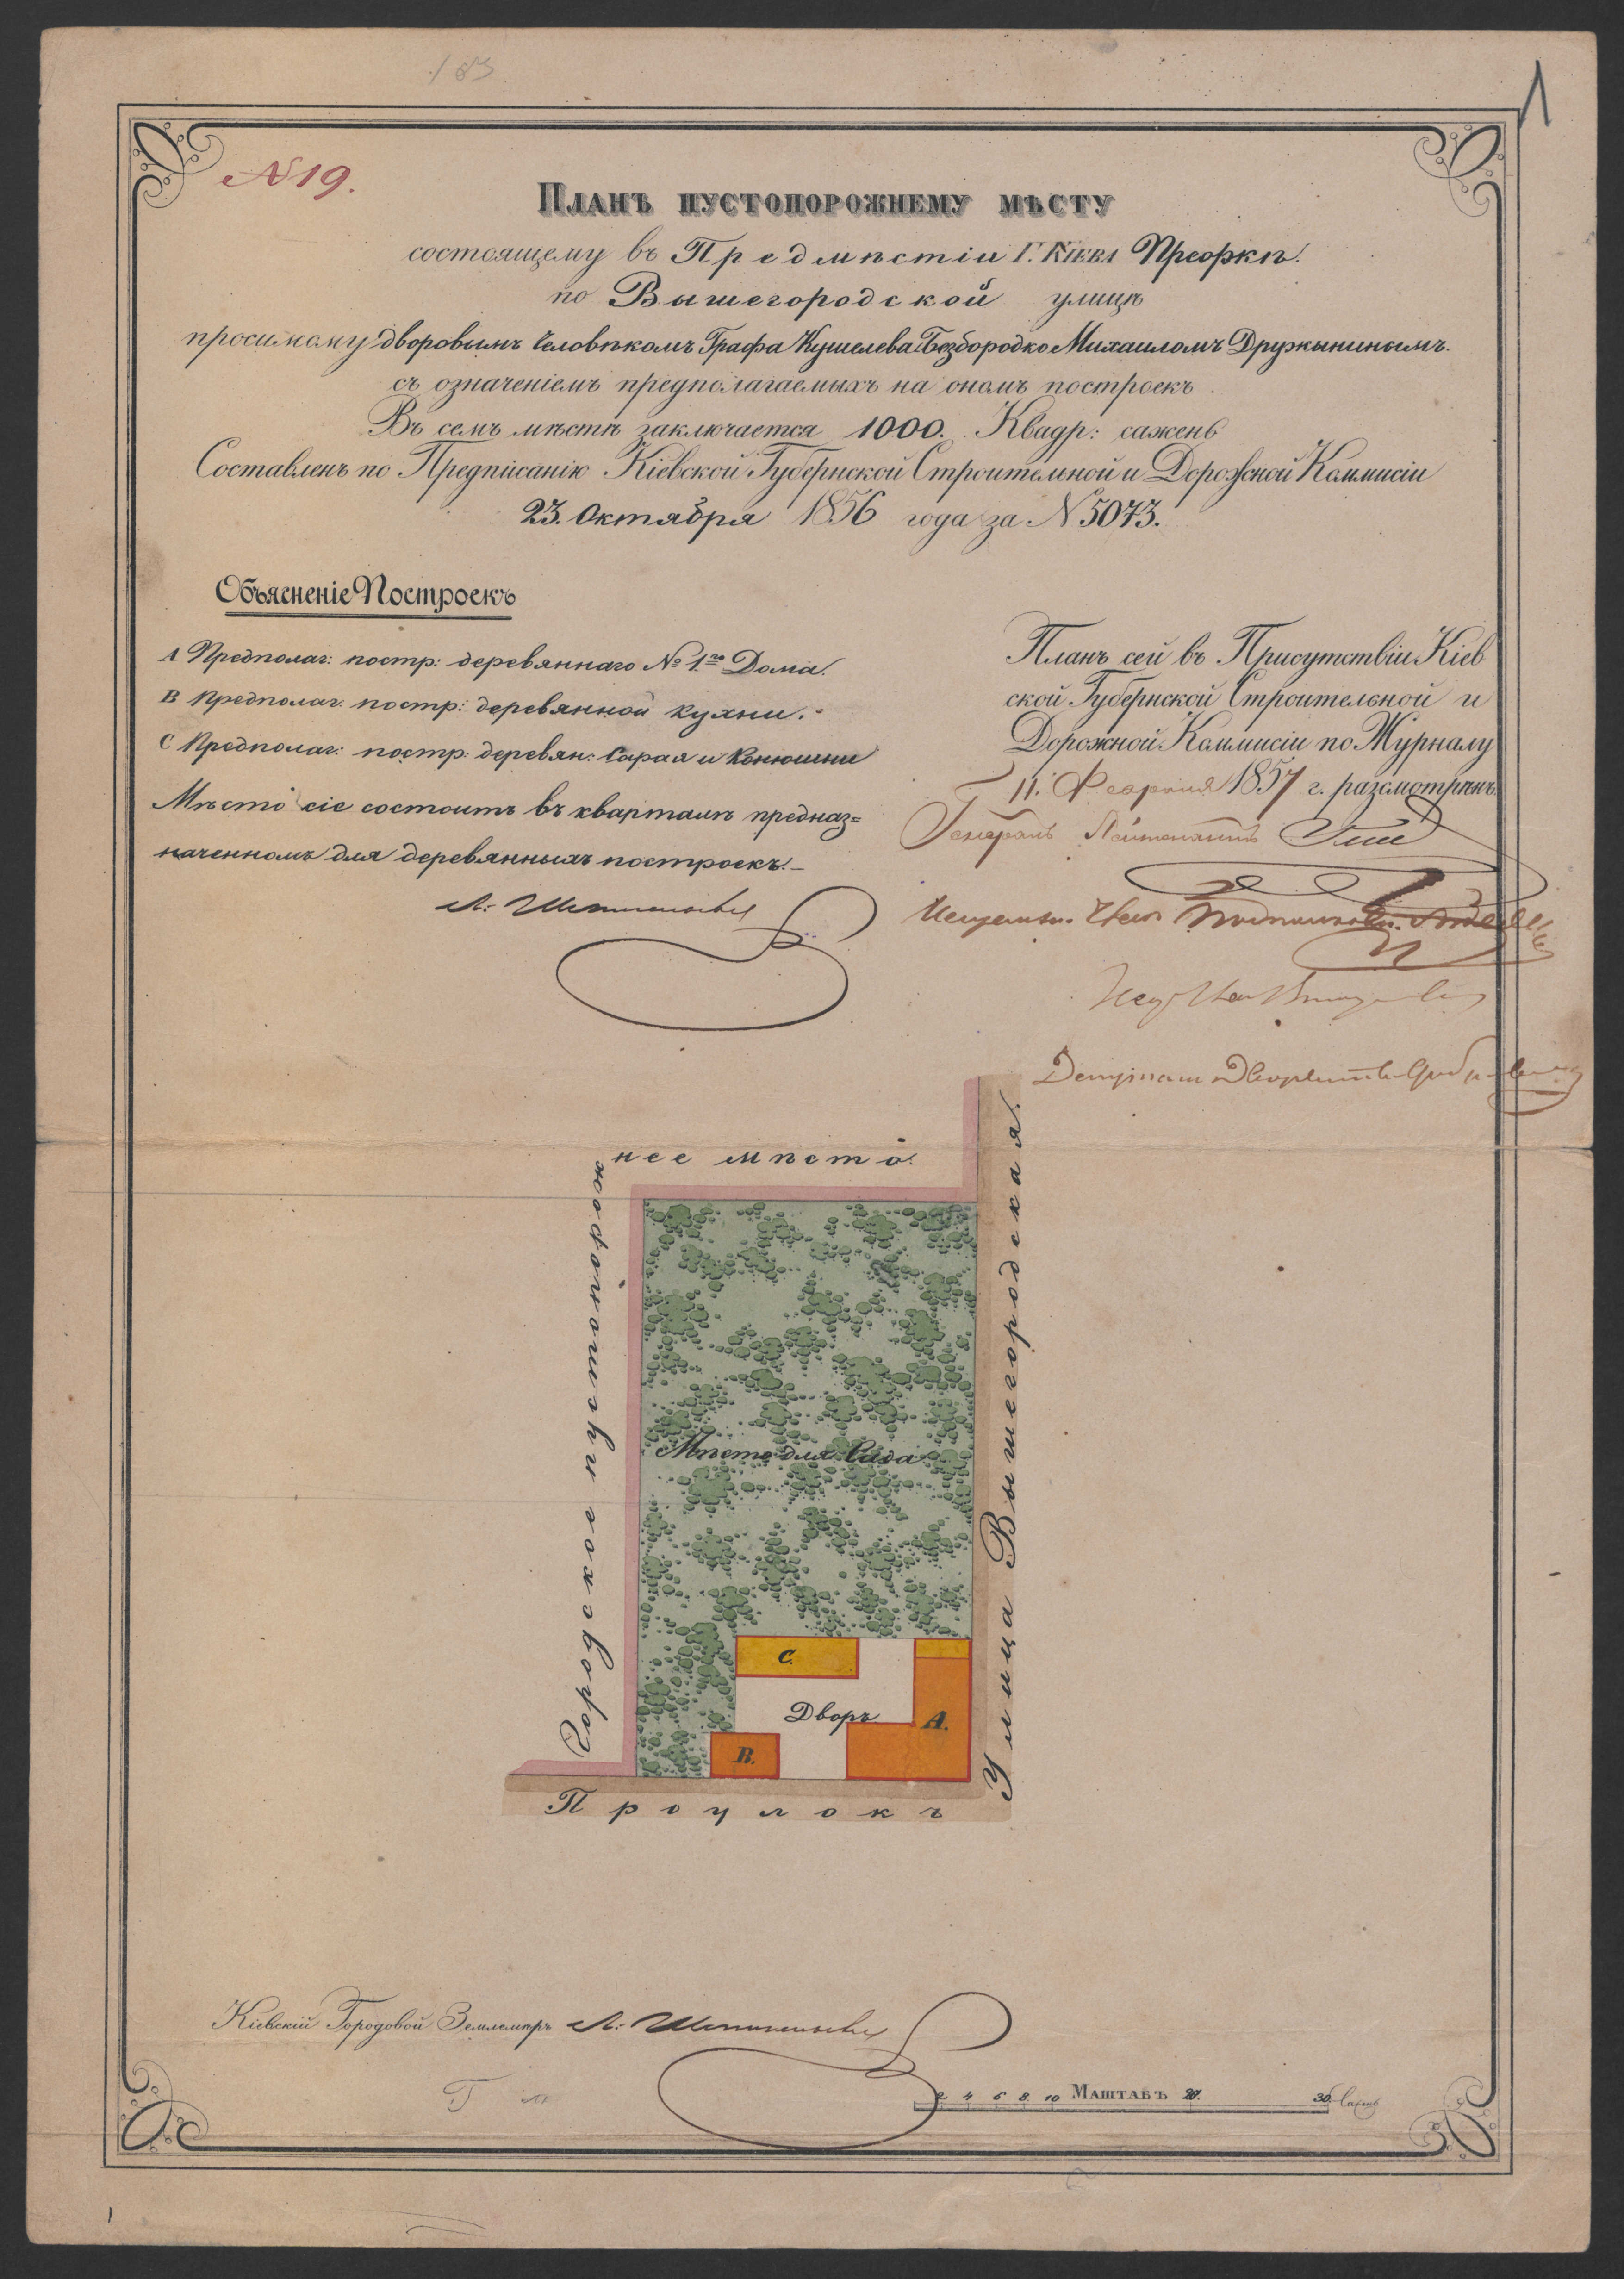 183
1
N 19.
Планъ пустопорожнему мѣсту
состоящему въ Предмѣстіи Г. Кіева Преоркѣ.
по Вышегородской улицѣ
просимому дворовымъ Человѣкомъ Графа Кушелева Безбородко Михаиломъ Дружынинымъ.
съ означеніемъ предполагаемыхъ на ономъ построекъ.
Въ семъ мѣстѣ заключается 1000. Квадр: сажень
Составленъ по Предписанію Кіевской Губернской Строительной и Дорожной Коммисіи
23. Октября 1856 года за N 5073.
Объясненіе Построекъ
А Предполаг: постр: деревяннаго № 1го Дома.
В Предполаг. постр: деревянной кухни.
С Предполаг: постр: деревян: Сарая и Конюшни
Мѣсто сіе состоитъ въ кварталѣ предназ=
наченномъ для деревянныхъ построекъ.
Планъ сей въ Присутствіи Кіев
ской Губернской Строительной и
Дорожной Коммисіи по Журналу
11. Февраля 1857 г. разсмотрѣнъ.
Генералъ Лейтенантъ
Депутатъ Дворянства
нее мѣсто.
Городское пустопорож
Улица Вышегородская.
Мѣсто для Сада
С.
Дворъ
А.
В.
Проулокъ
Кіевскій Городовой Землемѣръ
2 4 6 8 10 Маштабъ 20. 30 Саж